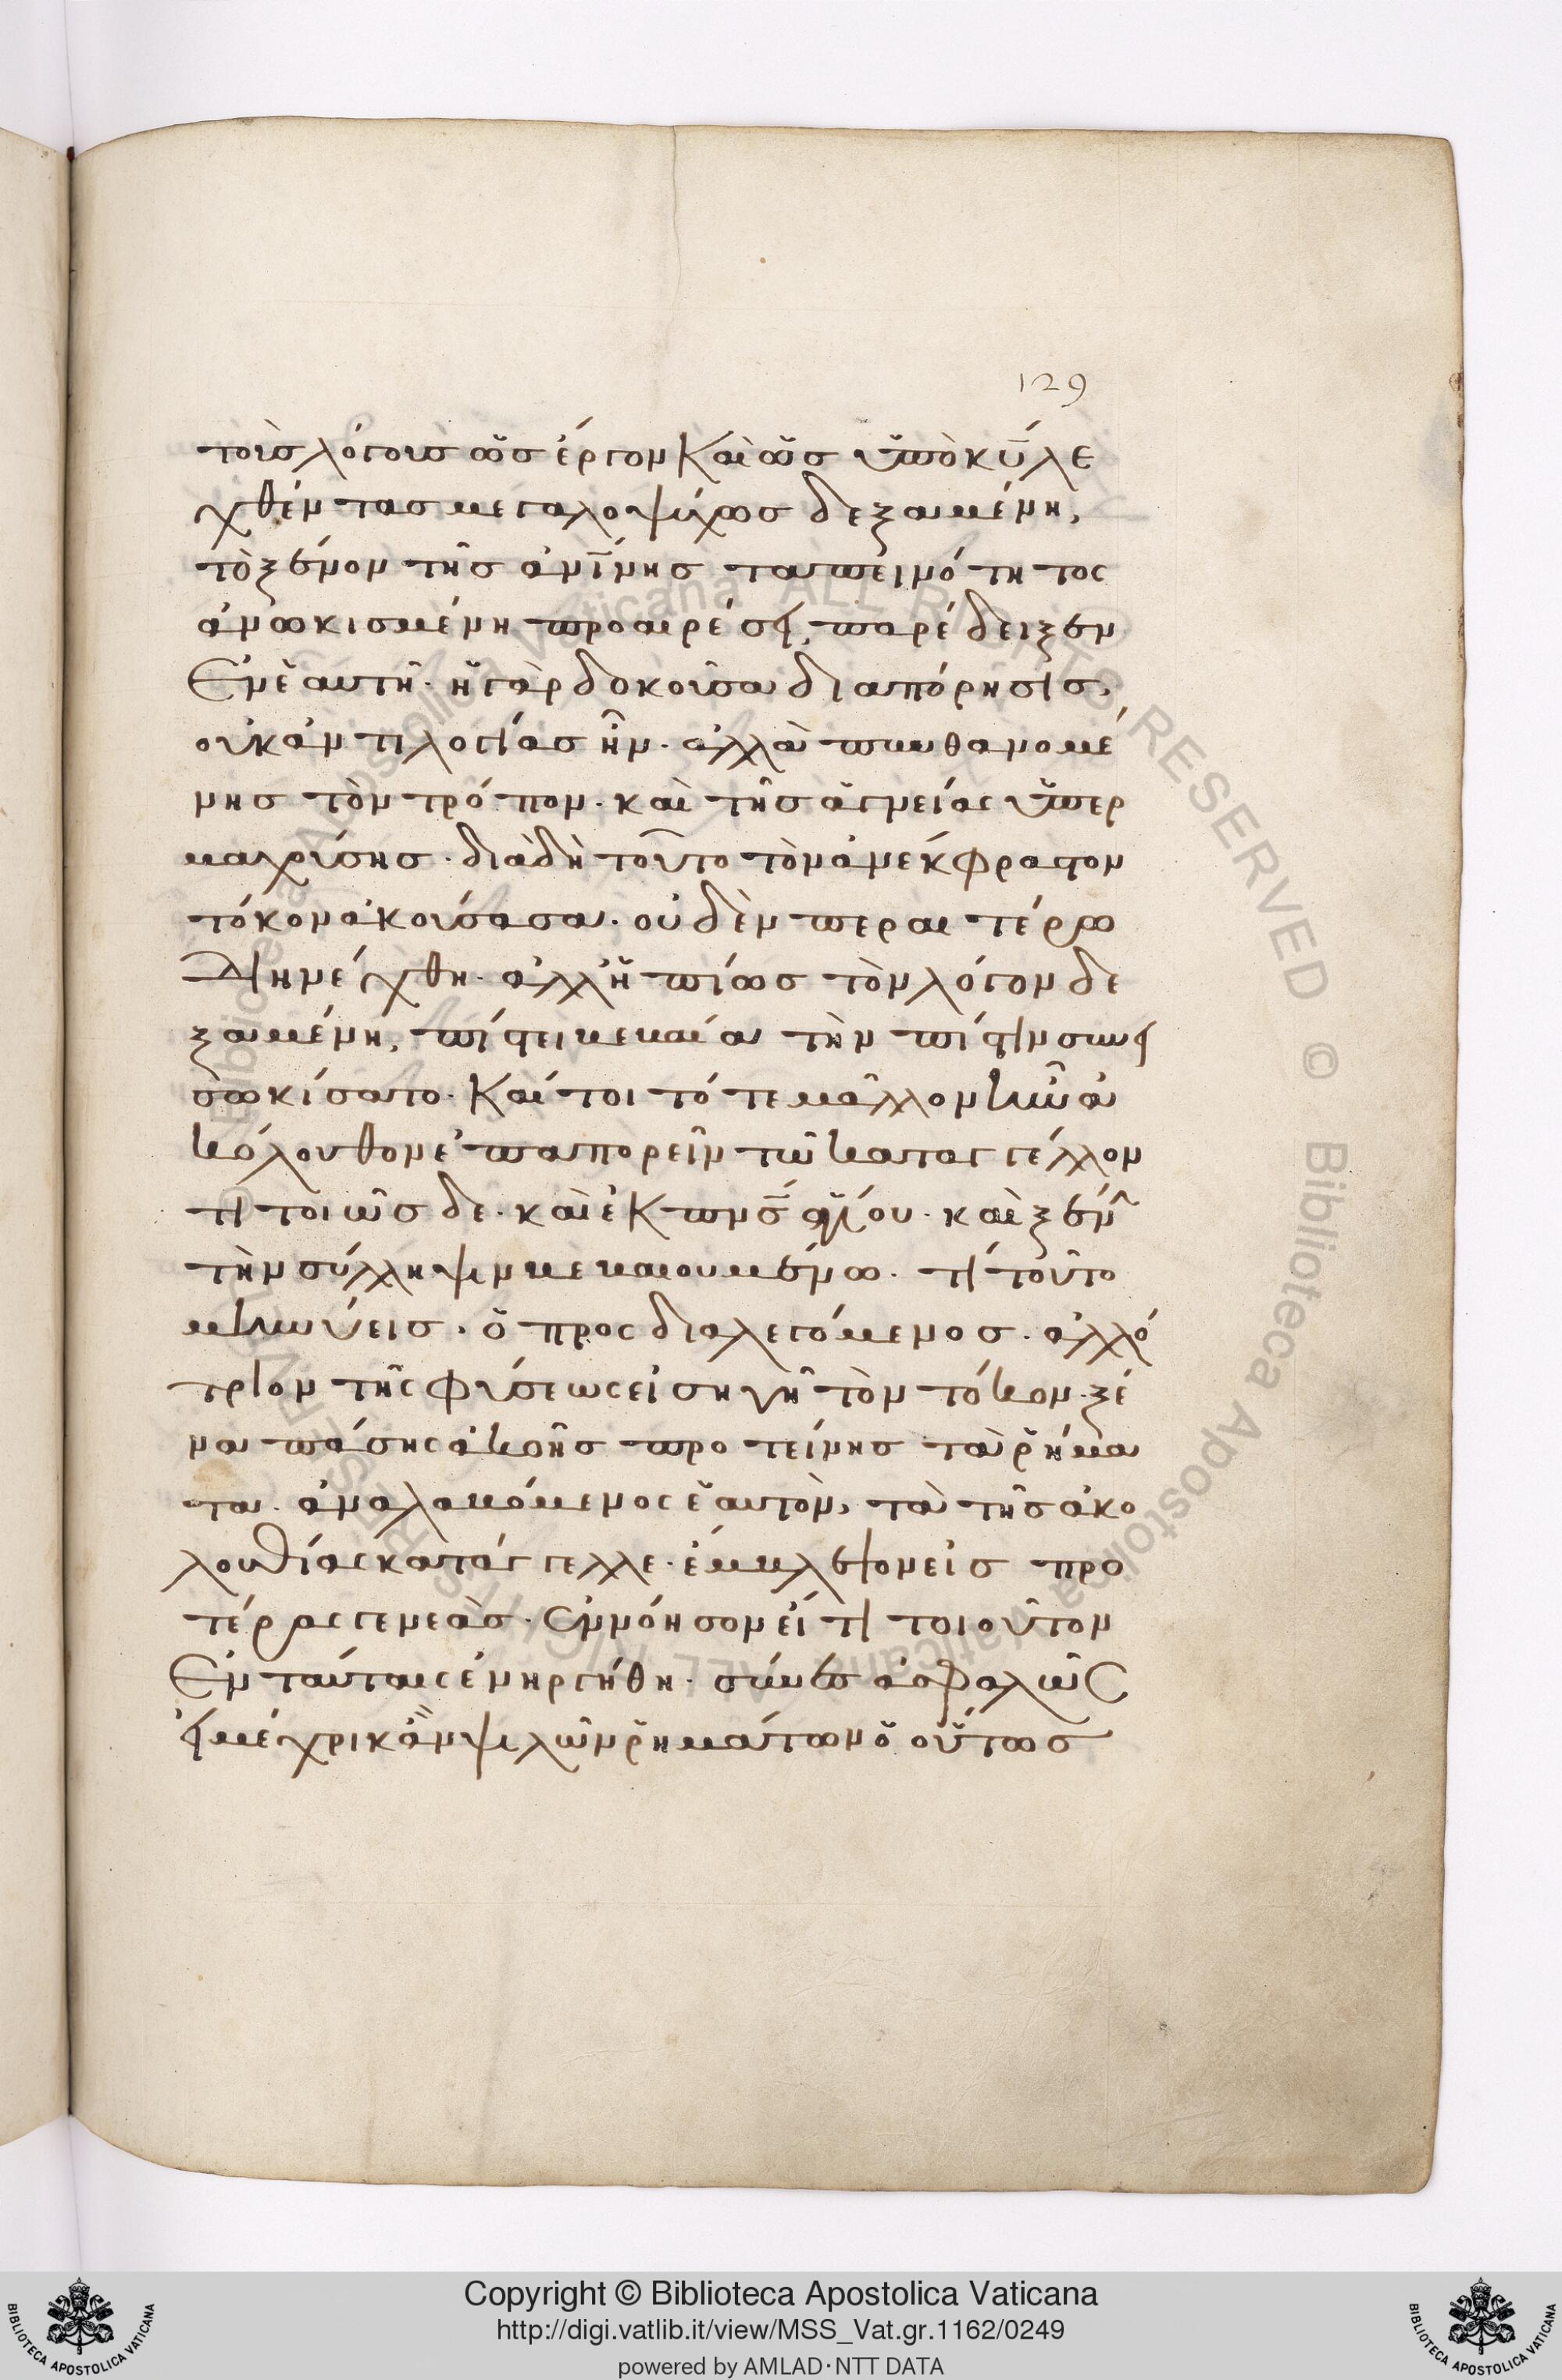 129
τοῖς λόγοις ὡς ἔργον καὶ ὡς ὑπὸ κ̅υ̅ λε
χθέντας μεγαλοψύχως δεξαμένη,
τὸ ξένον τῆς ἀ̅ν̅ί̅νης ταπεινότητος
ἀνωκισμένη προαιρέσει, παρέδειξεν
ἐν ἑαυτῇ· ἡ γὰρ δοκοῦσα διαπόρησις,
οὐκ ἀντιλογίας ἦν· ἀλλὰ πυνθανομέ
νης τὸν τρόπον· καὶ τῆς ἁγνείας ὑπερ
μαχούσης· διὰ δὴ τοῦτο τὸν ἀνέκφραστον
τόκον ἀκούσασα· οὐδὲν περαιτέρω
διηνέχθη· ἀλλ' ἠπίως τὸν λόγον δε
ξαμένη, πίστει βεβαίᾳ τὴν πίστιν συνει
σωκίσατο· καίτοι τότε μᾶλλον ἦν ἀ
κόλουθον ἐπαπορεῖν τῶ καταγγέλλον
τι τοιῶσδε· καὶ ἐκ π̅ν̅ς̅ ἁγίου· καὶ ξένην
τὴν σύλληψιν βεβαιουμένω· τί τοῦτο
μηνύεις· ὁ προσδιαλεγόμενος· ἀλλό
τριον τῆς φύσεως εἰσηγῆ τὸν τόκον· ξέ
να πάσης ἀκοῆς προτείνης τὰ ῥήμα
τα· ἀναλαβόμενος ἑαυτὸν, τὰ τῆς ἀκο
λουθίας κατάγγελλε· ἔμβλεψον εἰς προ
τέρας γενεάς· ἐννόησον εἴ τι τοιοῦτον
ἐν ταύταις ἐνηργήθη· σύνες ἀσφαλῶς
εἰ μέχρι κἂν ψιλῶν ῥημάτων ὃ οὕτως
Copyright © Biblioteca Apostolica Vaticana
http://digi.vatlib.it/view/MSS_Vat.gr.1162/0249
powered by AMLAD·NTT DATA
BIBLIOTECA APOSTOLICA VATICANA
BIBLIOTECA APOSTOLICA VATICANA
© Biblioteca Apostolica Vaticana ALL RIGHTS RESERVED